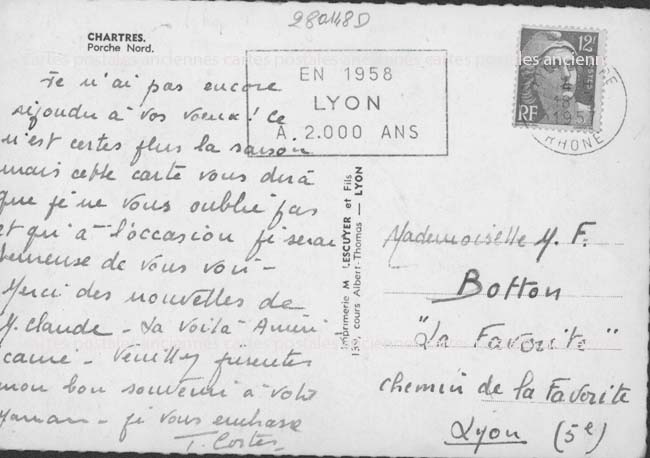 28a148D
CHARTRES.
Porche Nord.
cartes postales anciennes cartes postales anciennes cartes postales anciennes
EN 1958
LYON
A 2.000 ANS
12F
RF
1957
RHONE
Je n'ai pas encore
répondu à vos voeux! Ce
n'est certes plus la saison
mais cette carte vous dira
que je ne vous oublie pas
et qu'à l'occasion je serai
heureuse de vous voir -
Merci des nouvelles de
M. Claude - La voilà Améri
caine - Veuillez présenter
mon bon souvenir à votre
Maman - je vous embrasse
T. Costes
Imprimerie M. LESCUYER et Fils
cours Albert-Thomas — LYON
Mademoiselle M. F.
Botton
"La Favorite"
chemin de la Favorite
Lyon (5e)